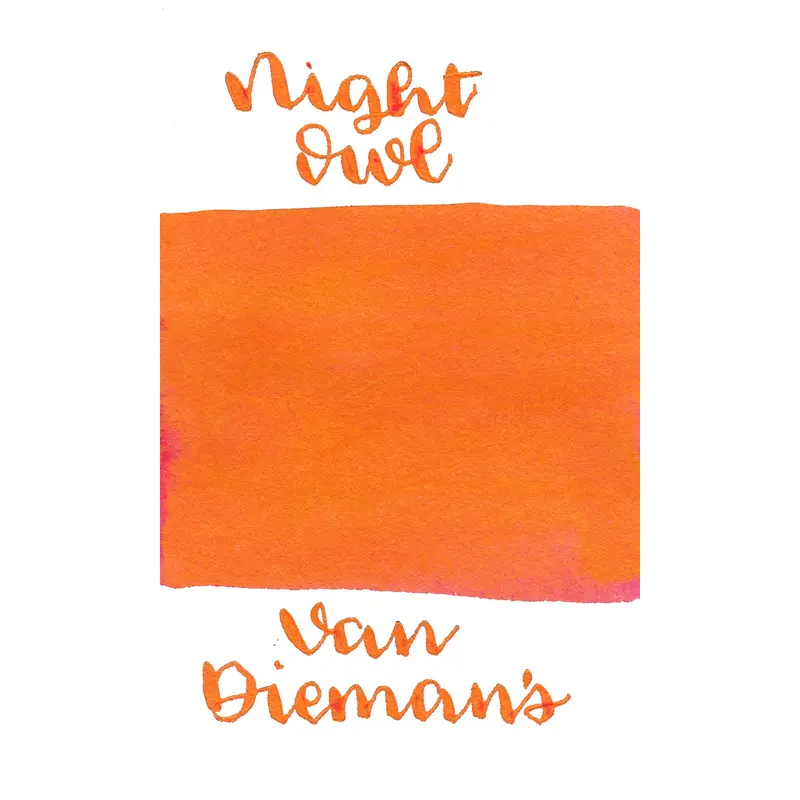 Night
Owl
Van
Dieman's